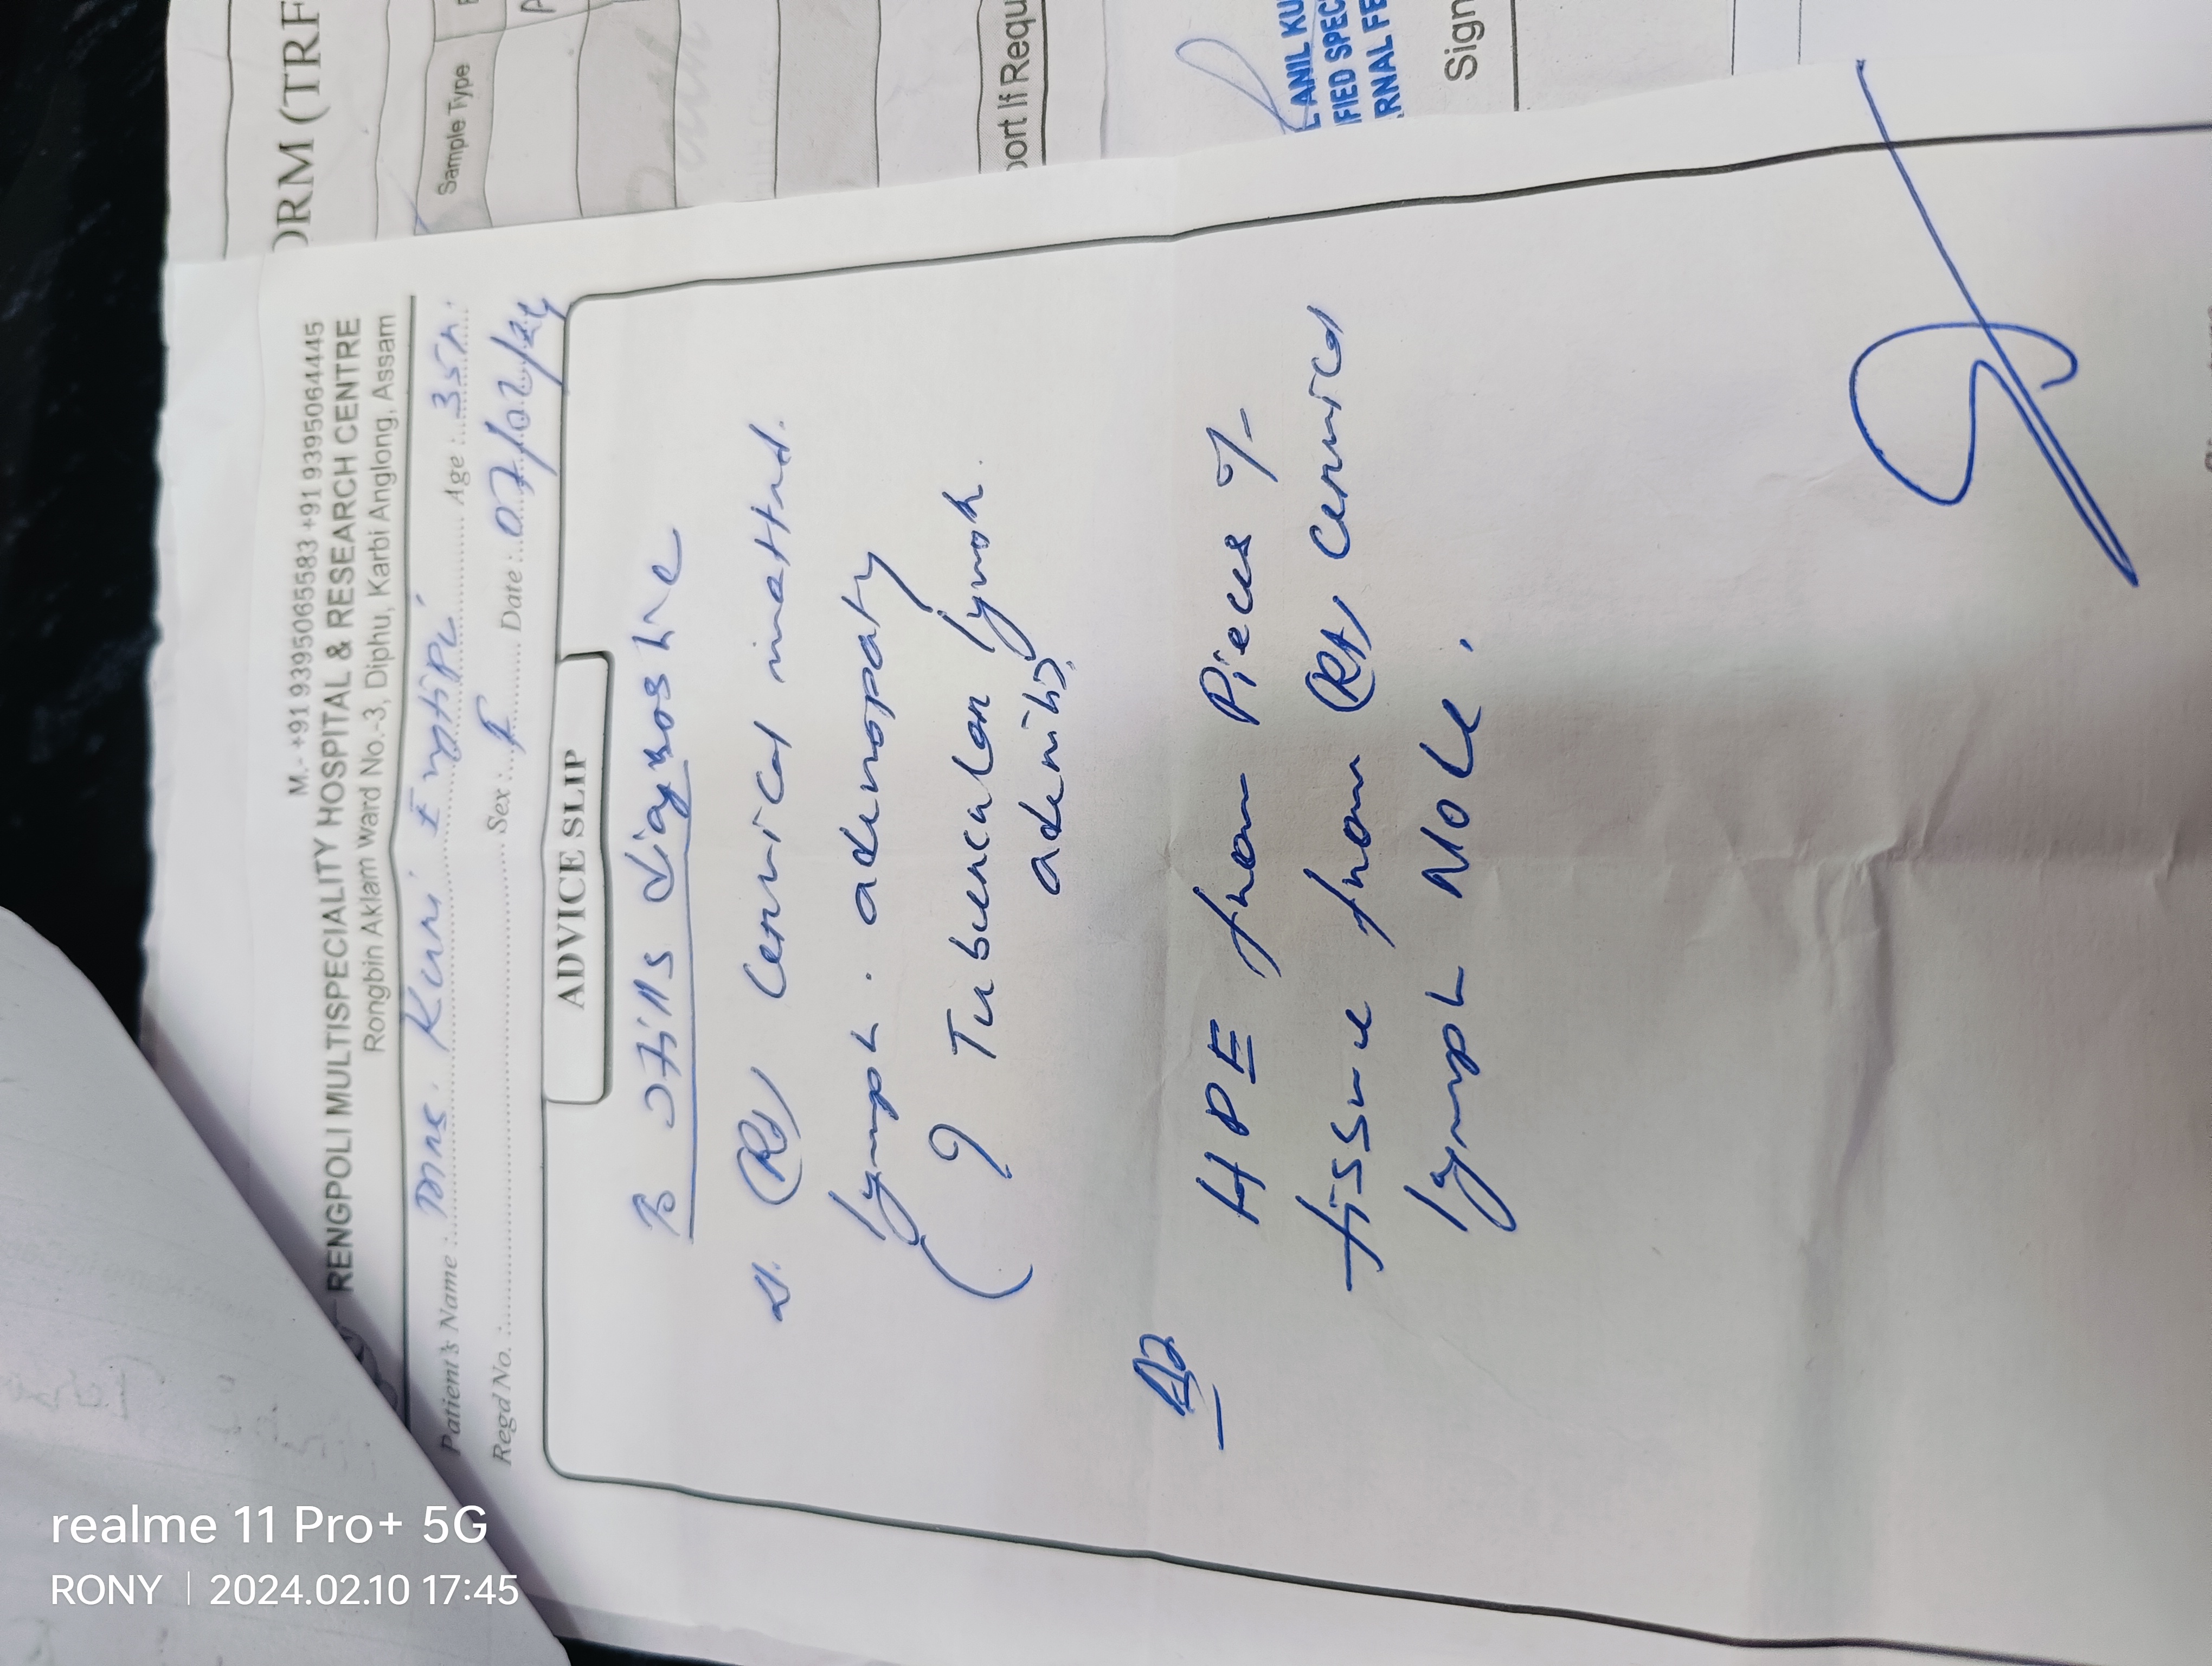 M.- +91 9395065583 +91 9395064445
RENGPOLI MULTISPECIALITY HOSPITAL & RESEARCH CENTRE
Rongbin Aklam Ward No.-3, Diphu, Karbi Anglong, Assam
Patient's Name : Mrs. Kuni Ingtipi Age : 35
Regd No. : Sex : F Date : 07/02/24
ADVICE SLIP
diagnostic
(Rt) Cervical matted.
lymph. adenopaty
(? Tubercular lymph.
adenitis)
HPE from Pieces of
tissue from (Rt) cervical
lymph Node.
ORM (TRF
Sample Type
port If Requ
ANIL KU
FIED SPEC
RNAL FE
Sign
realme 11 Pro+ 5G
RONY | 2024.02.10 17:45